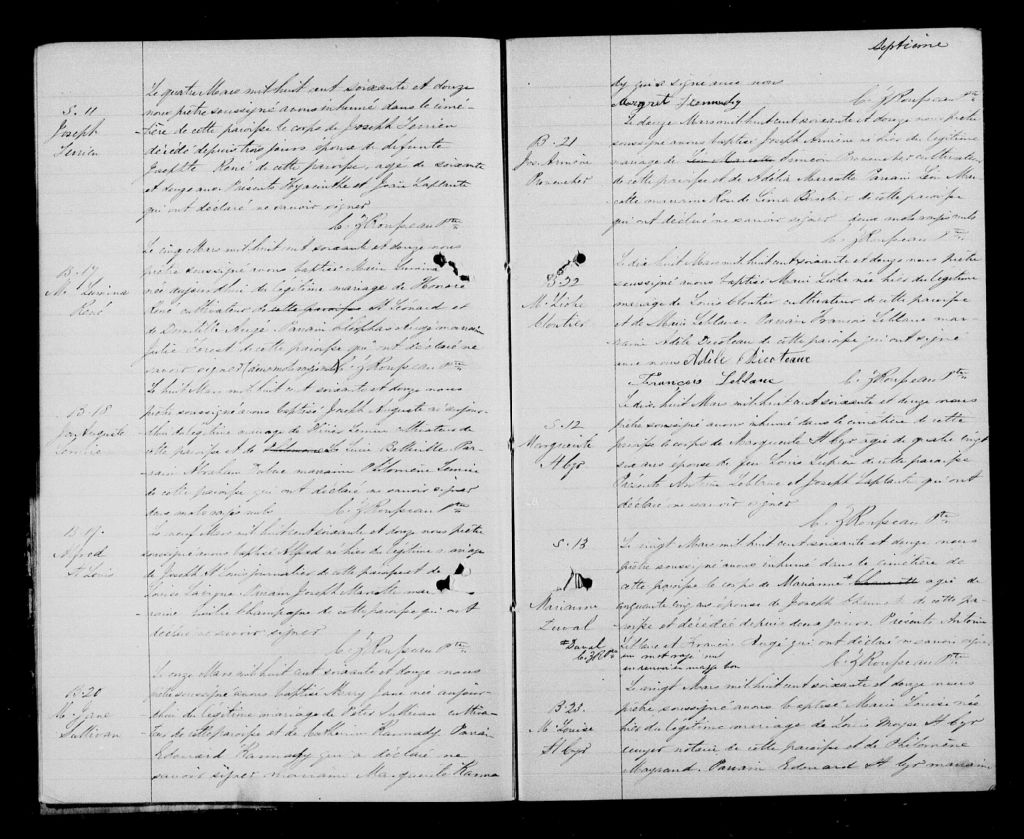 S. 11
Joseph
Terrien
Le quatre Mars mil huit cent soixante et douze
nous prêtre soussigné avons inhumé dans le cime-
tière de cette paroisse le corps de Joseph Terrien
décédé depuis trois jours époux de defunte
Josephte René de cette paroisse, agé de soixante
et douze ans. Présents Hyacinthe et Jean Laplante
qui ont déclaré ne savoir signer
Rousseau Ptre
B. 17
Me Lumina
René
Le cinq Mars mil huit cent soixante et douze nous
prêtre soussigné avons baptisé Marie Lumina
née aujourd'hui du légitime mariage de Honoré
René cultivateur de cette paroisse St Léonard et
de Domitille Augé. Parrain Cléophas marraine
Julie Forest de cette paroisse qui ont déclaré ne
savoir signer Rousseau Ptre
B. 18
Jos Auguste
Le huit Mars mil huit cent soixante et douze nous
prêtre soussigné avons baptisé Joseph Auguste né aujour-
d'hui du légitime mariage de
cette paroisse et de Par-
rain Abraham marraine Philomène
de cette paroisse qui ont déclaré ne savoir signer
deux mots rayés nuls Rousseau Ptre
B. 19.
Alfred
St Louis
Le neuf Mars mil huit cent soixante et douze nous prêtre
soussigné avons baptisé Alfred né hier du légitime mariage
de Joseph St Louis journalier de cette paroisse et de
Louise Parrain Joseph mar-
raine Emilie Champagne de cette paroisse qui ont
déclaré ne savoir signer
Rousseau Ptre
B. 20
M. Jane
Sullivan
Le onze Mars mil huit cent soixante et douze nous
prêtre soussigné avons baptisé Mary Jane née aujour-
d'hui du légitime mariage de Peter Sullivan cultiva-
teur de cette paroisse et de Catherine Kannady. Parrain
Edouard Kannady qui a déclaré ne
savoir signer marraine Marguerite Kanna
septième
dy qui a signé avec nous
Margret Kennedy
Rousseau Ptre
B. 21
Jos. Arméné
Provencher
Le douze Mars mil huit cent soixante et douze nous prêtre
soussigné avons baptisé Joseph Arméné né hier du légitime
mariage de Siméon Provencher cultivateur
de cette paroisse et de Adélia Marcotte Parrain Léon Mar
cotte marraine Rose de Lima de cette paroisse
qui ont déclaré ne savoir signer deux mots rayés nuls
Rousseau Ptre
B. 22
M. Lidie
Cloutier
Le dix huit Mars mil huit cent soixante et douze nous prêtre
soussigné avons baptisé Marie Lidie née hier du légitime
mariage de Louis Cloutier cultivateur de cette paroisse
et de Marie Leblanc. Parrain François Leblanc mar-
raine Adèle Decoteau de cette paroisse qui ont signé
avec nous Adèle Decoteau
François Leblanc Rousseau Ptre
S. 12
Marguerite
St Cyr
Le dix huit Mars mil huit cent soixante et douze nous
prêtre soussigné avons inhumé dans le cimetière de cette
paroisse le corps de Marguerite St Cyr agée de quatre vingt
six ans épouse de feu Louis de cette paroisse
Présents Antoine Leblanc et Joseph Laplante qui ont
déclaré ne savoir signer
Rousseau Ptre
S. 13
Marianne
Duval
+ Duval
Le vingt Mars mil huit cent soixante et douze nous
prêtre soussigné avons inhumé dans le cimetière de
cette paroisse le corps de Marianne + agée de
cinquante cinq ans épouse de Joseph de cette pa-
roisse et décédée depuis deux jours. Présents Antoine
Leblanc et Francis Augé qui ont déclaré ne savoir signer
un mot rayé nul
un renvoi en marge bon
Rousseau Ptre
B. 23.
Me Louise
St Cyr
Le vingt Mars mil huit cent soixante et douze nous
prêtre soussigné avons baptisé Marie Louise née
hier du légitime mariage de Louis Moyse St Cyr
écuyer notaire de cette paroisse et de Philomène
Mayrand. Parrain Edouard St Cyr marrain